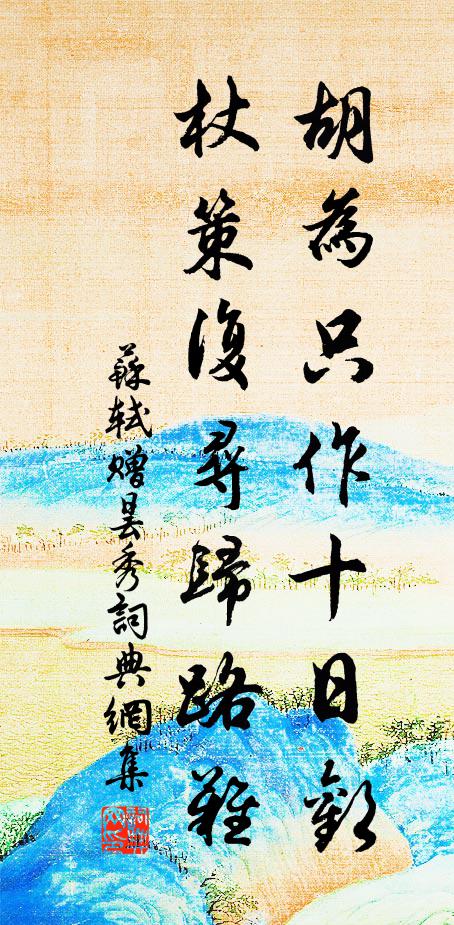 胡為只作十日歡
杖策復尋歸路難
蘇軾贈曇秀詞典網集